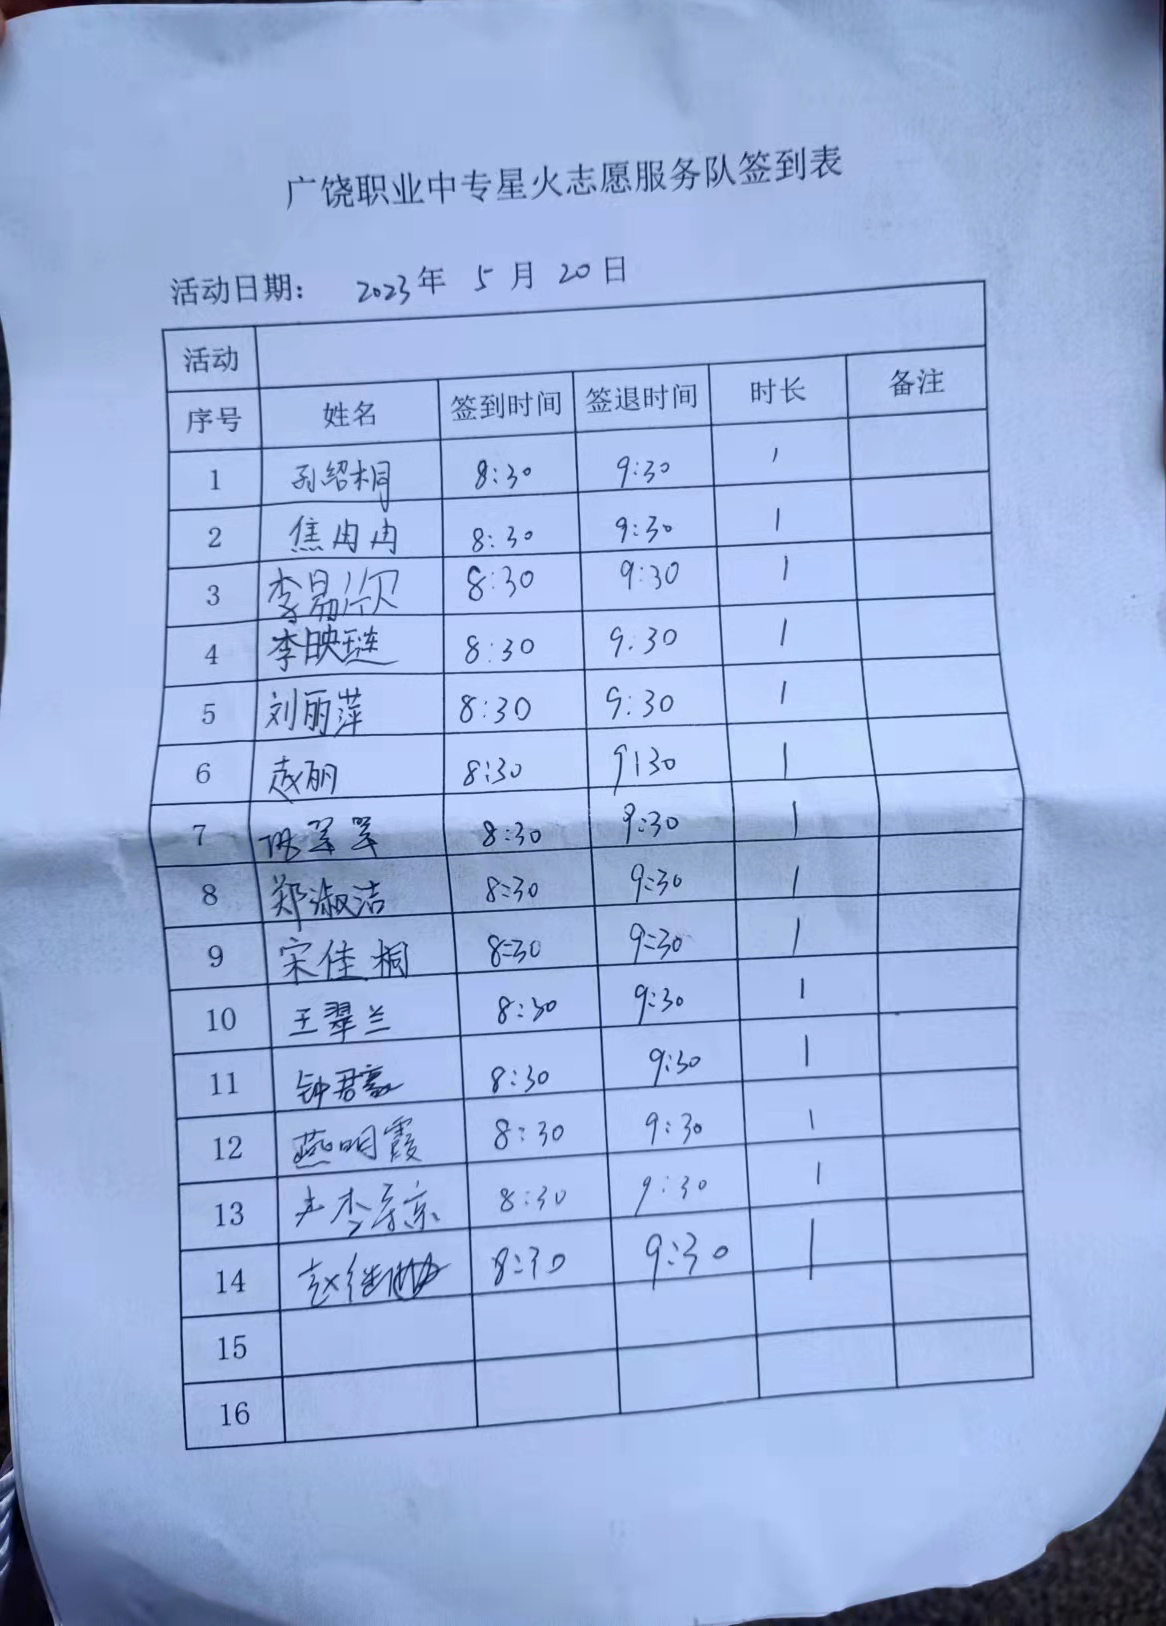 广饶职业中专星火志愿服务队签到表
活动日期： 2023年 5月 20日
活动
序号 姓名 签到时间 签退时间 时长 备注
1 孙绍桐 8:30 9:30 1
2 焦冉冉 8:30 9:30 1
3 李勗欣 8:30 9:30 1
4 李映琏 8:30 9:30 1
5 刘丽萍 8:30 9:30 1
6 赵丽 8:30 9:30 1
7 8:30 9:30 1
8 郑淑洁 8:30 9:30 1
9 宋佳桐 8:30 9:30 1
10 王翠兰 8:30 9:30 1
11 钟君豪 8:30 9:30 1
12 燕明霞 8:30 9:30 1
13 8:30 9:30 1
14 8:30 9:30 1
15
16